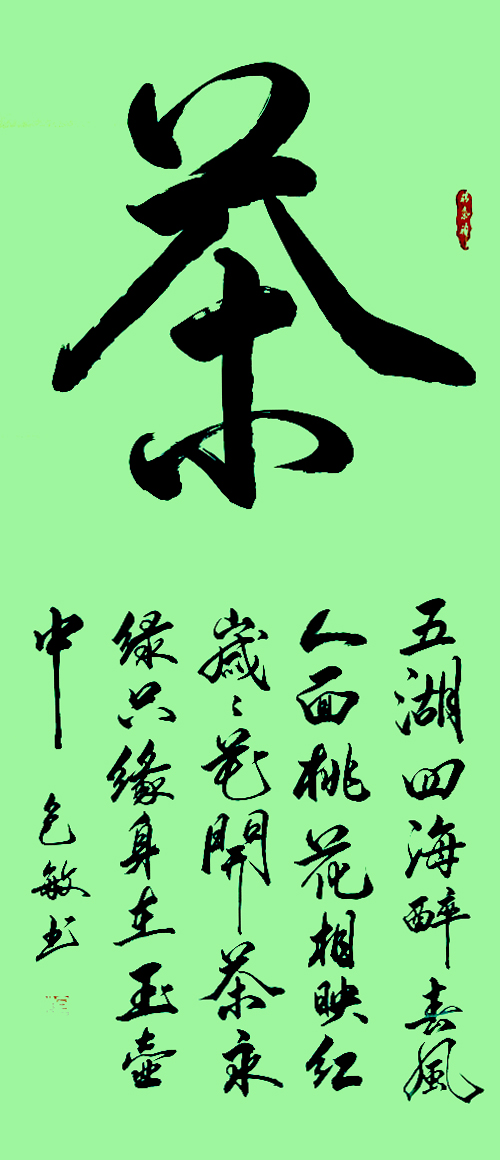 茶
五湖四海醉春風
人面桃花相映红
歲〻花開茶永
绿只缘身在玉壶
中
色敏书